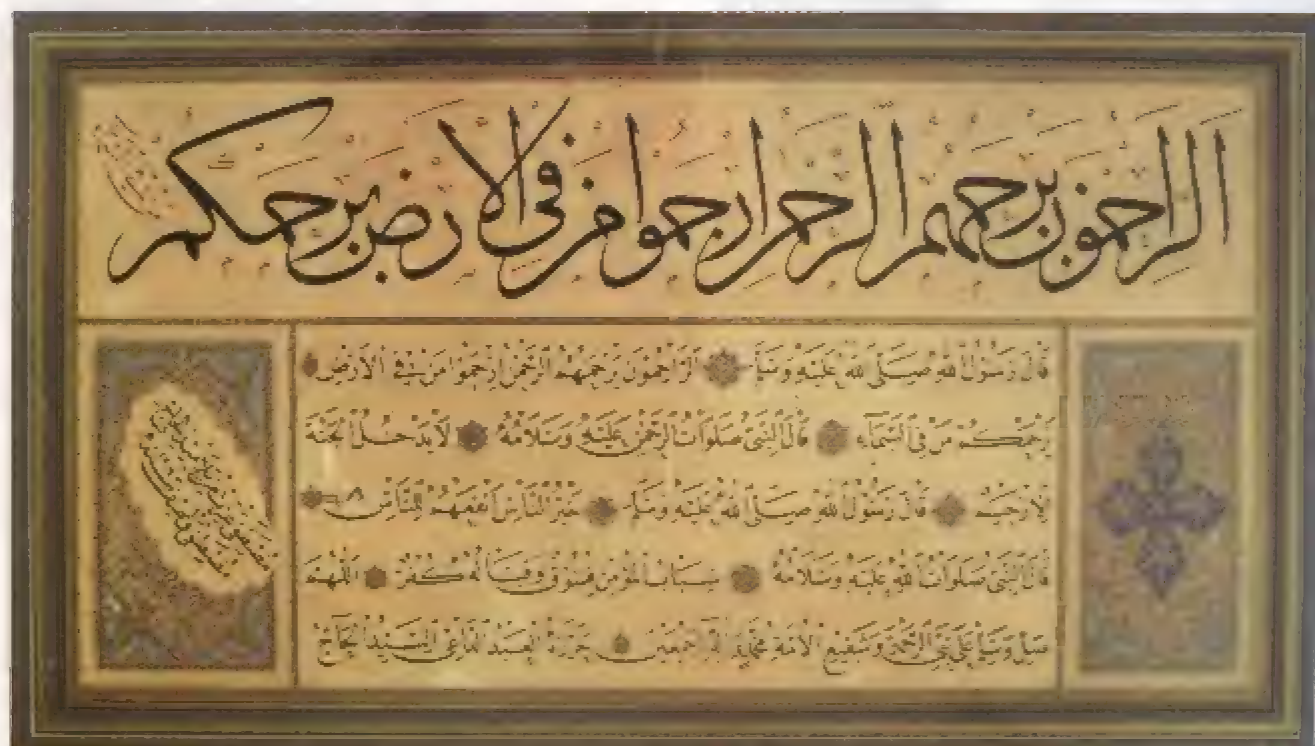 الراحمون يرحمهم الرحمن ارحموا من في الارض يرحمكم
قال رسول الله صلى الله عليه وسلم الراحمون يرحمهم الرحمن ارحموا من في الارض
يرحمكم من في السماء قال النبي صلوات الرحمن عليه وسلامه لا يدخل الجنة
الا رحيم قال رسول الله صلى الله عليه وسلم خير الناس انفعهم للناس
قال النبي صلوات الله عليه وسلامه سباب المؤمن فسوق وقتاله كفر اللهم
صل وسلم على نبي الرحمة وشفيع الامة محمد وآله اجمعين حرره العبد الداعي السيد الحاج